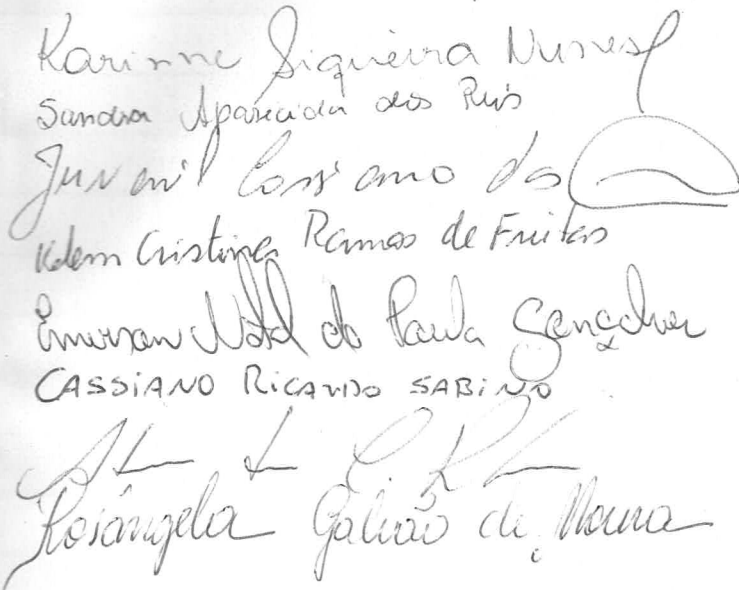 Karinne Siqueira Nunes
Sandra Aparecida dos Reis
Juvenil Cassiano dos
Kelem Cristina Ramos de Freitas
Emerson Natal de Paula Gonçalves
CASSIANO RICARDO SABINO
Rosângela Galvão de Moura